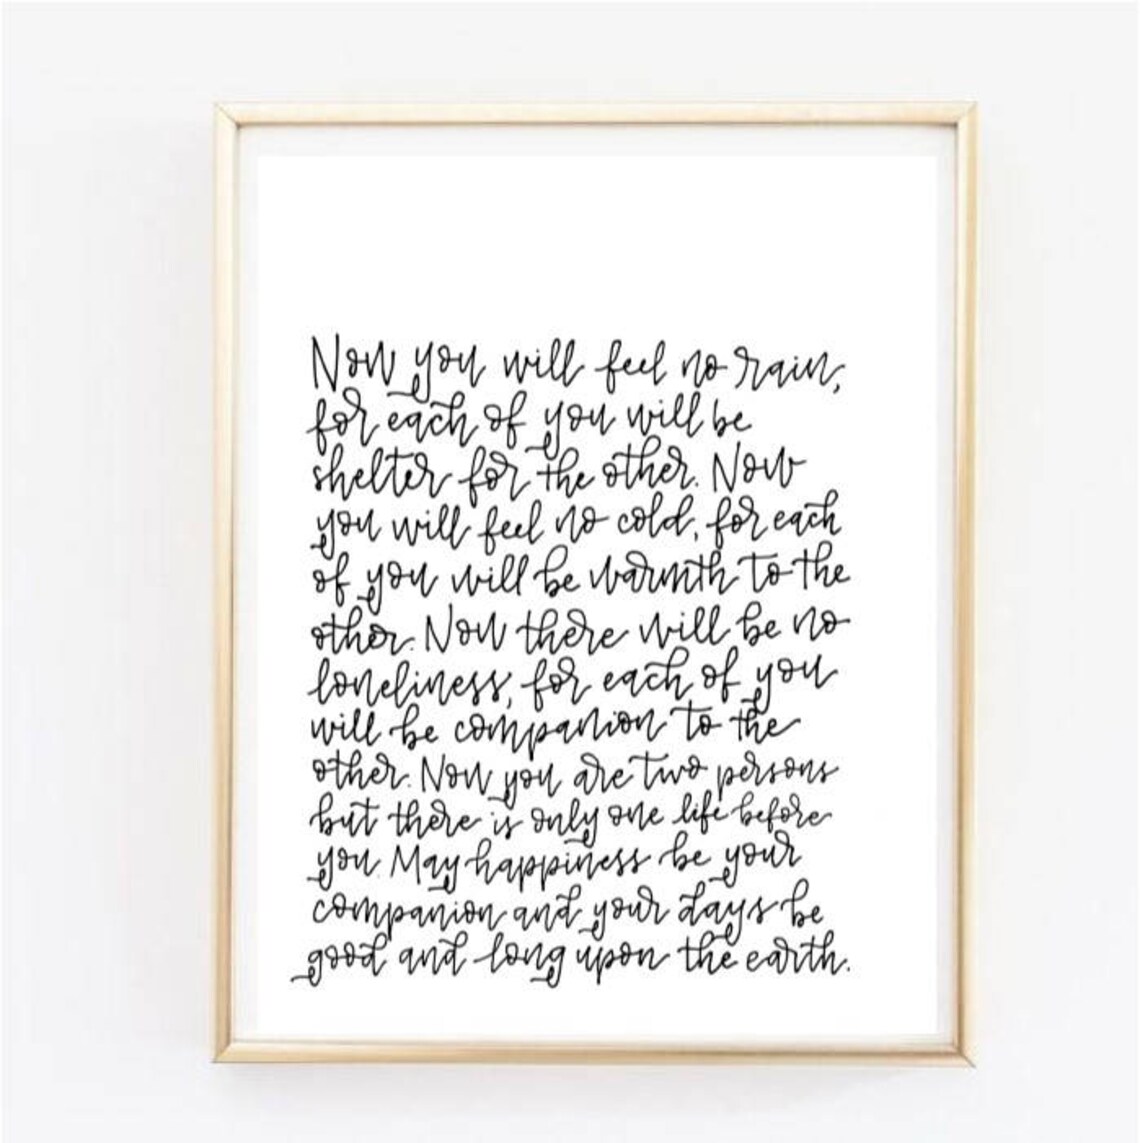 Now you will feel no rain,
for each of you will be
shelter for the other. Now
you will feel no cold, for each
of you will be warmth to the
other. Now there will be no
loneliness, for each of you
will be companion to the
other. Now you are two persons
but there is only one life before
you. May happiness be your
companion and your days be
good and long upon the earth.